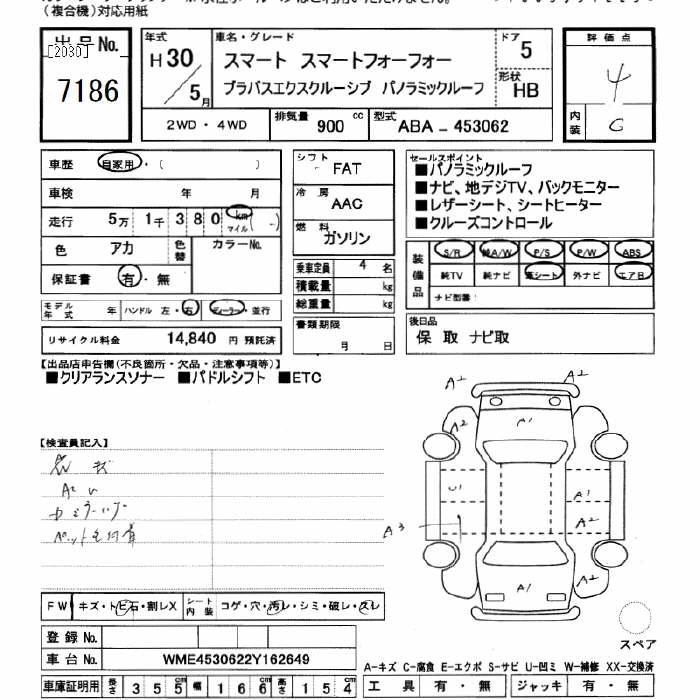 (複合機)対応用紙
出品No.
[2030]
7186
年式
H30
5月
車名・グレード
スマート スマートフォーフォー
ブラバスエクスクルーシブ パノラミックルーフ
ドア
5
形状
HB
評価点
4
内装
C
2WD・4WD
排気量 900 cc
型式 ABA - 453062
車歴 自家用・( )
車検 年 月
走行 5万 1千 3 8 0 km マイル ( - )
色 アカ 色替 カラーNo.
保証書 有・無
モデル年式 年 ハンドル 左・右 ディーラー・並行
リサイクル料金 14,840 円 預託済
シフト FAT
冷房 AAC
燃料 ガソリン
乗車定員 4 名
積載量 kg
総重量 kg
書類期限
月 日
セールスポイント
■パノラミックルーフ
■ナビ、地デジTV、バックモニター
■レザーシート、シートヒーター
■クルーズコントロール
装備品
S/R 純A/W P/S P/W ABS
純TV 純ナビ 革シート 外ナビ エアB
ナビ型番:
後日品
保 取 ナビ取
【出品店申告欄(不良箇所・欠品・注意事項等)】
■クリアランスソナー ■パドルシフト ■ETC
【検査員記入】
A2 U
A2 A2
A2 A1 A2
U1 A1
A3 A2
A1 A2
FW キズ・トビ石・割レX シート内装 コゲ・穴・汚レ・シミ・破レ・スレ
登録No.
車台No. WME4530622Y162649
車庫証明用 長さ 3 5 5 cm 幅 1 6 6 cm 高さ 1 5 4 cm
スペア
A-キズ C-腐食 E-エクボ S-サビ U-凹ミ W-補修 XX-交換済
工具 有・無 ジャッキ 有・無